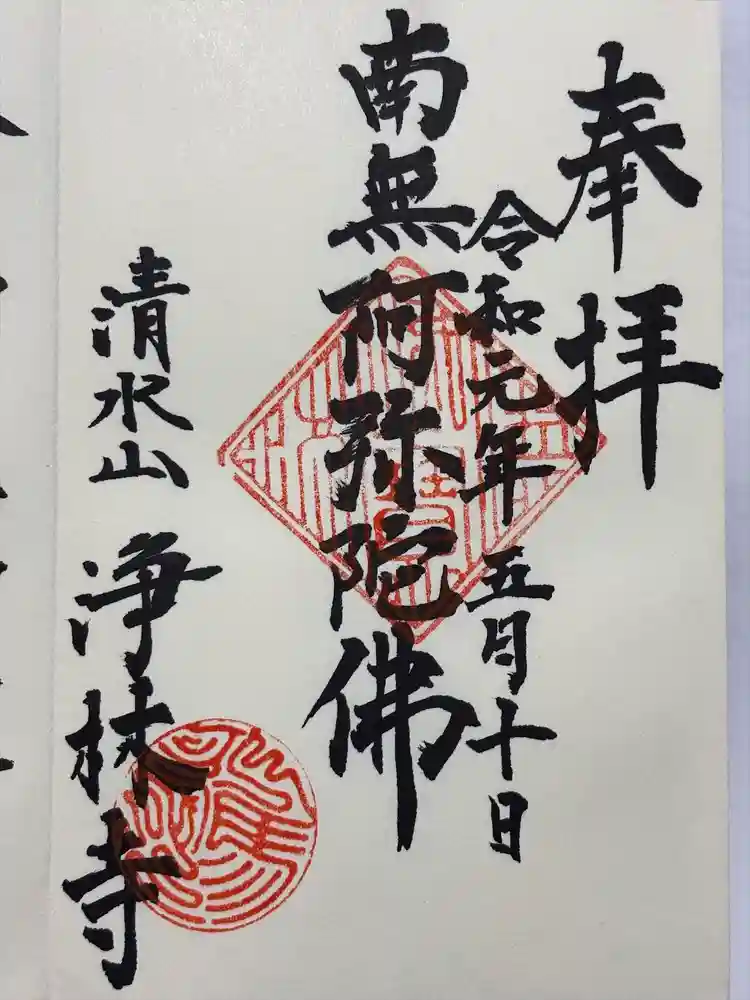 奉拝
令和元年五月十日
南無阿弥陀佛
清水山 浄林寺